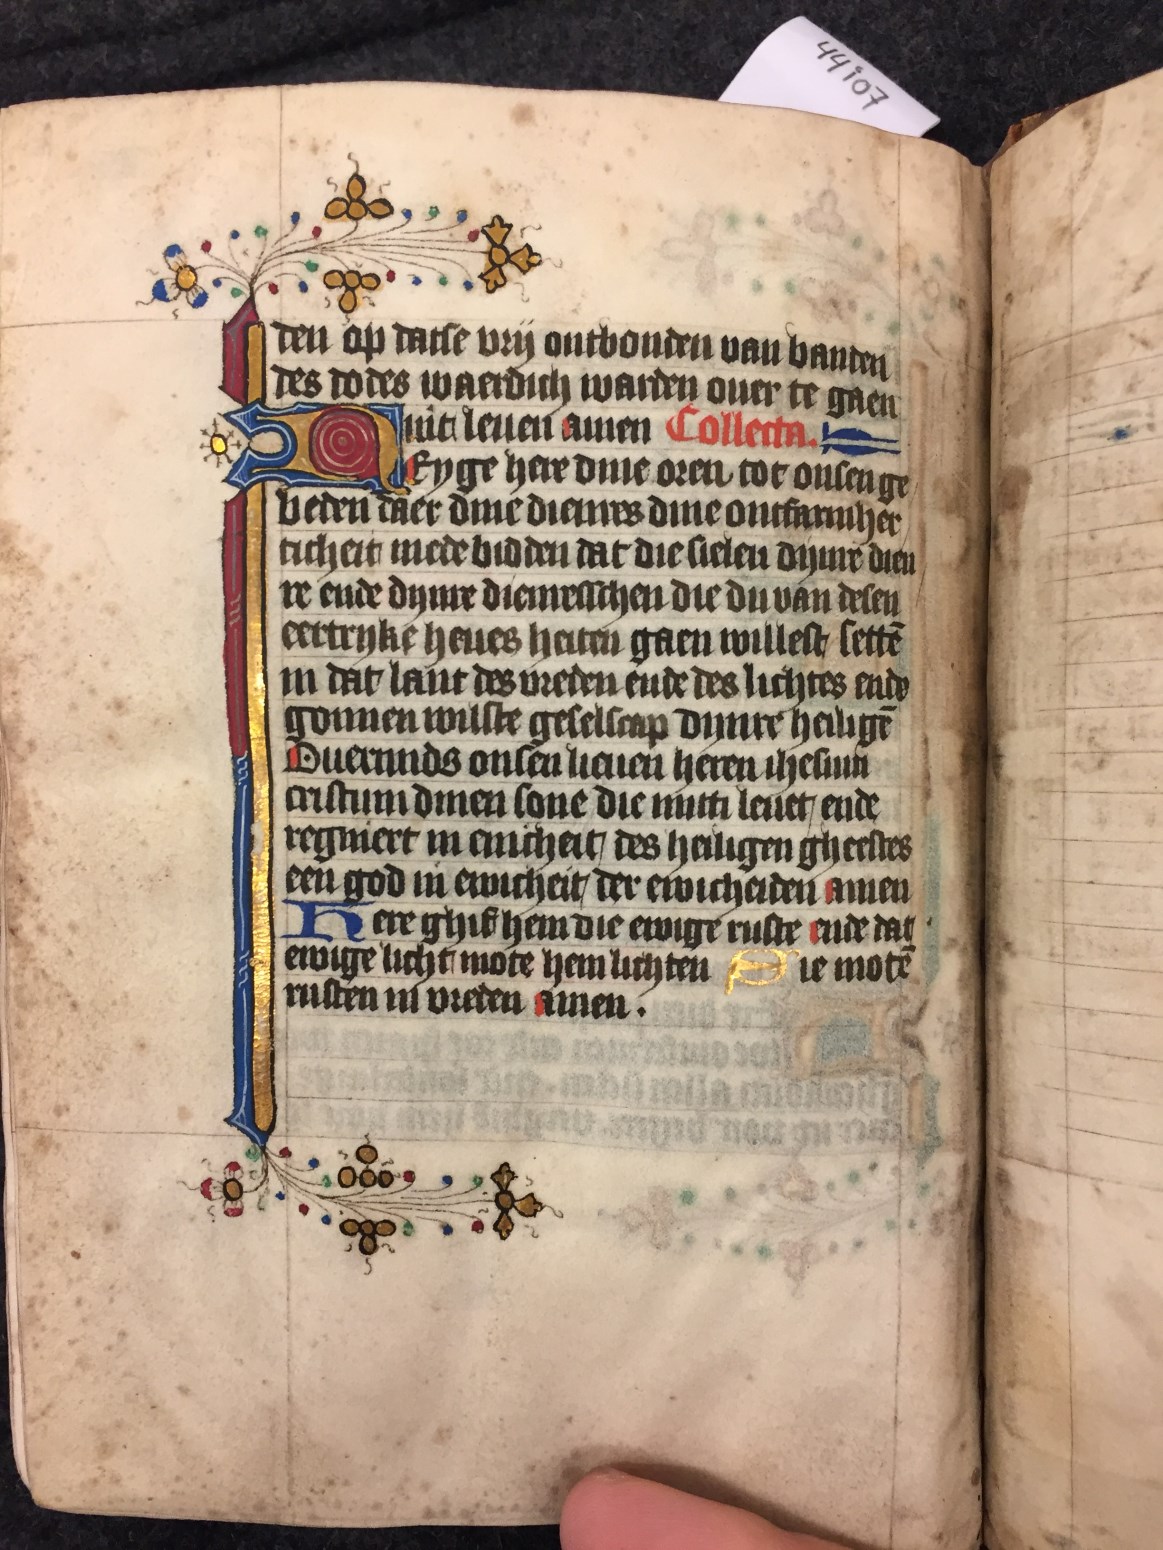 44i07
den op datse vrij ontbonden van banden
des dodes waerdich warden ouer te gaen
int leuen amen Collecta.
NEyge here dine oren tot onsen ge
beden daer dine dienres dine ontfarmher
ticheit mede bidden dat die sielen dynre dien
re ende dynre dienresschen die du van desen
eertryke heues heiten gaen willest settē
in dat lant des vreden ende des lichtes ende
gonnen wilste geselscap dynre heiligē
Ouermids onsen lieuen heren ihesum
cristum dinen sone die mitti leuet ende
regniert in enicheit des heiligen gheestes
een god in ewicheit der ewicheiden amen
Here ghif hem die ewige ruste ende dat
ewige licht mote hem lichten Sie motē
rusten in vreden amen.